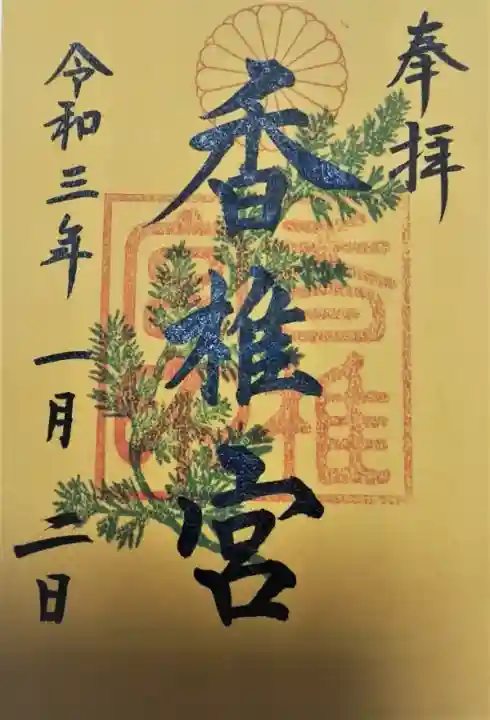 奉拝
香椎宮
令和三年一月二日